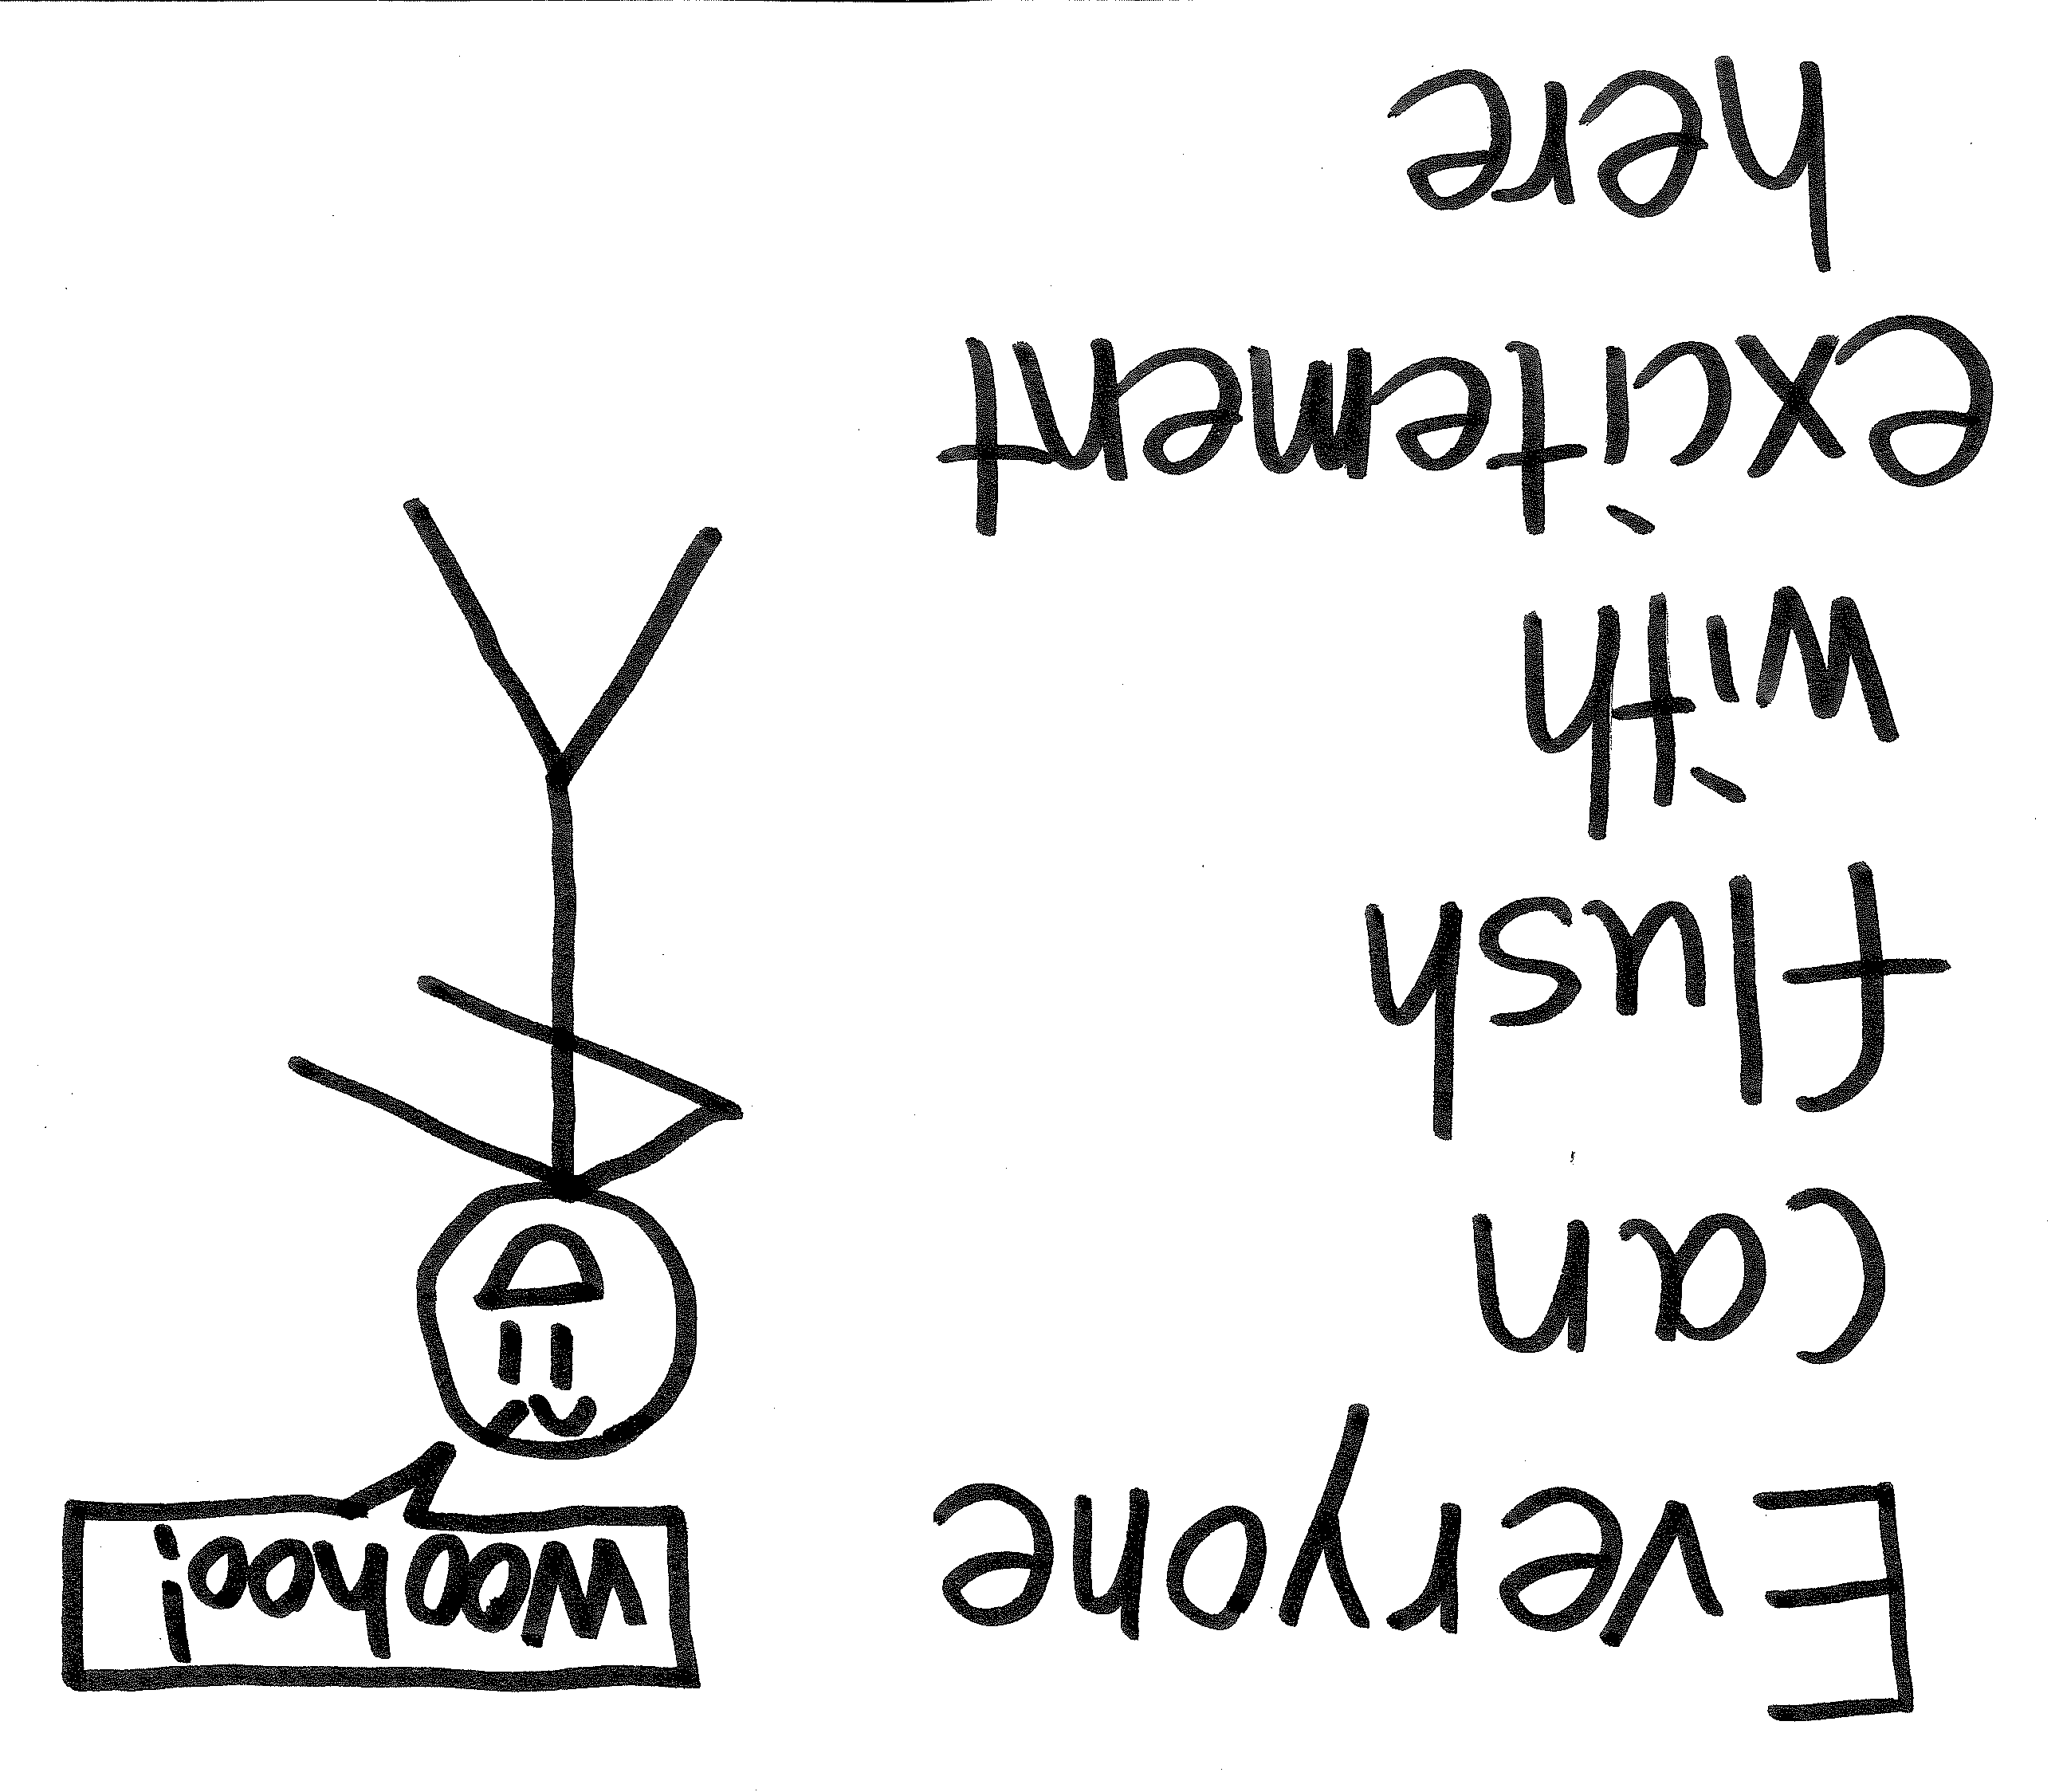 Everyone
can
flush
with
excitement
here
woohoo!